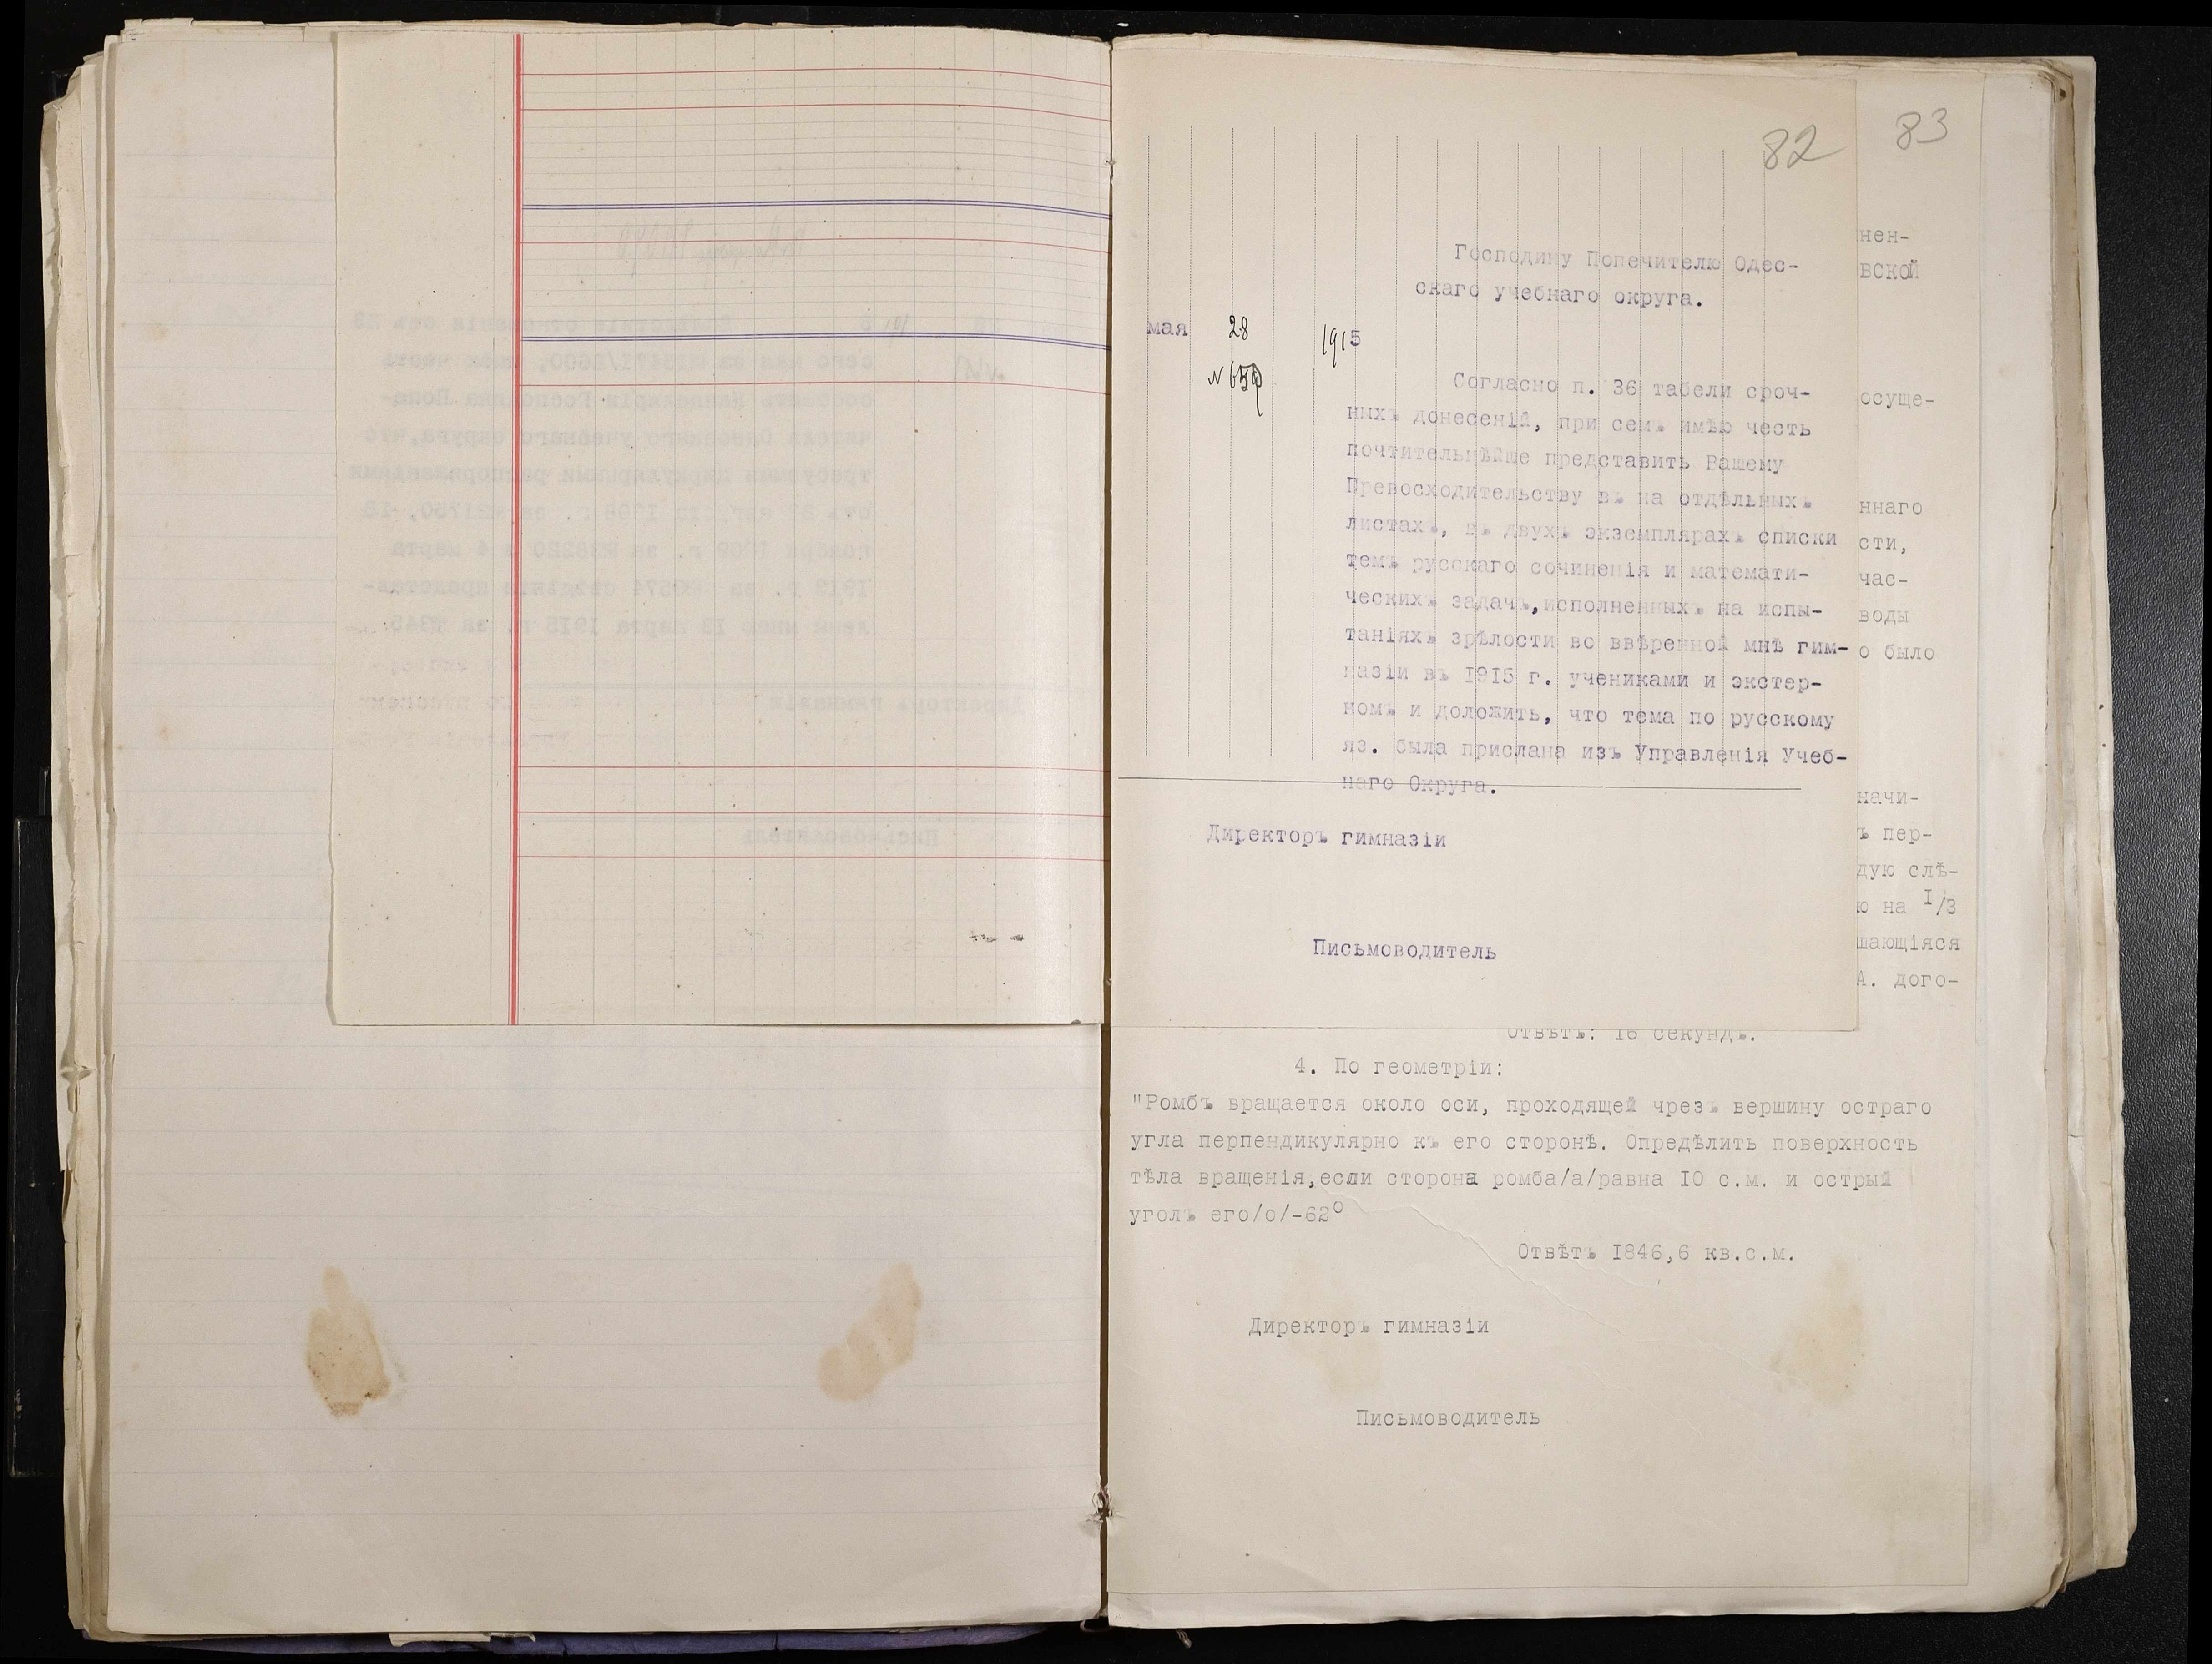 82
83
Господину Попечителю Одес-
скаго учебнаго округа.
мая 28 1915
N 659
Согласно п. 36 табели сроч-
ныхъ донесеній, при семъ имѣю честь
почтительнѣйше представить Вашему
Превосходительству въ на отдѣльныхъ
листахъ, въ двухъ экземплярахъ списки
темъ русскаго сочиненія и математи-
ческихъ задачъ,исполненныхъ на испы-
таніяхъ зрѣлости во ввѣренной мнѣ гим-
назіи въ 1915 г. учениками и экстер-
номъ и доложить, что тема по русскому
яз. была прислана изъ Управленія Учеб-
наго Округа.
Директоръ гимназіи
Письмоводитель
нен-
вской
осуще-
ннаго
сти,
час-
воды
о было
начи-
ъ пер-
дую слѣ-
ю на I/3
шающіяся
А. дого-
Отвѣтъ: 16 секундъ.
4. По геометріи:
"Ромбъ вращается около оси, проходящей чрезъ вершину остраго
угла перпендикулярно къ его сторонѣ. Опредѣлить поверхность
тѣла вращенія,если сторона ромба/а/равна IO с.м. и острый
уголъ его/о/-62°
Отвѣтъ I846,6 кв.с.м.
Директоръ гимназіи
Письмоводитель